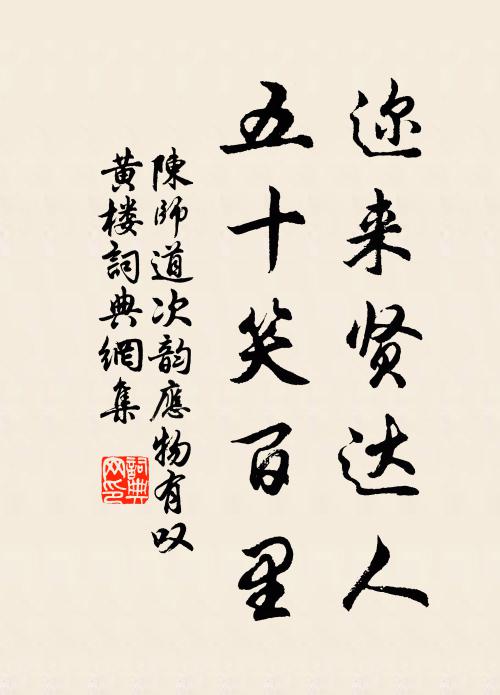 迩来贤达人
五十笑百里
陳師道次韵應物有叹
黄楼詞典網集
詞典网印